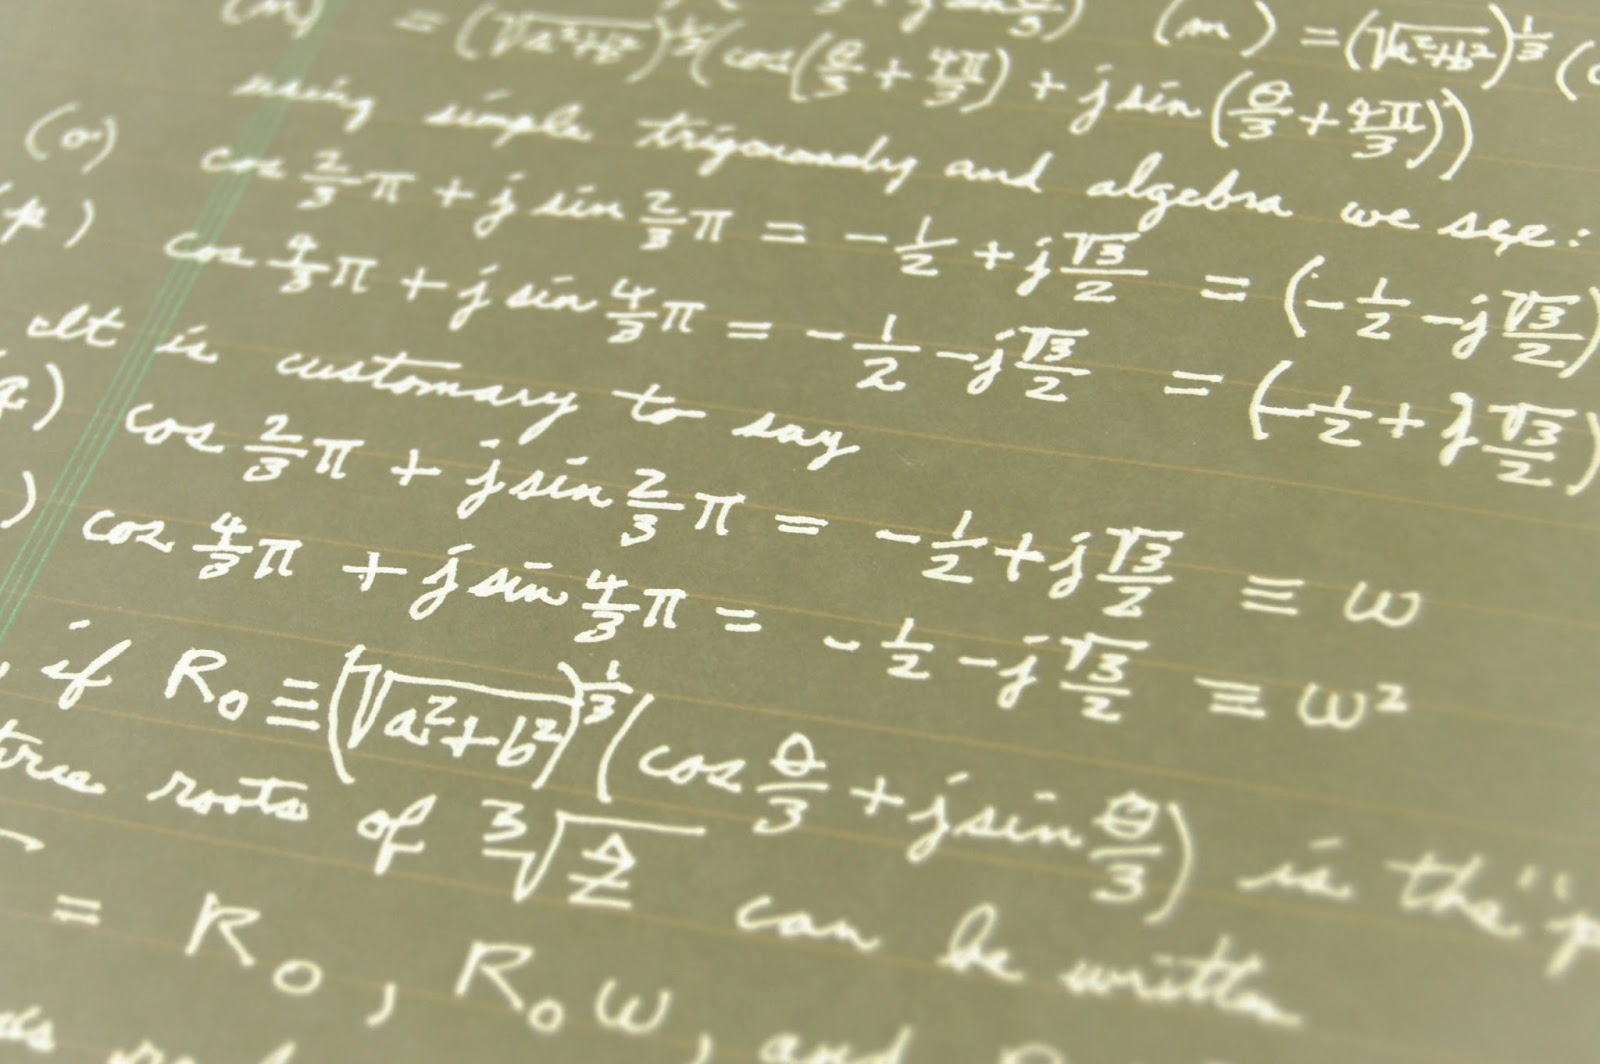 = (√a²+b²)^{1/3} (cos(θ/3 + 4π/3) + j sin(θ/3 + 4π/3))
(m) = (√a²+b²)^{1/3} (
using simple trigonometry and algebra we see:
(o) cos 2/3 π + j sin 2/3 π = -1/2 + j √3/2 = (-1/2 - j √3/2)
p) cos 4/3 π + j sin 4/3 π = -1/2 - j √3/2 = (-1/2 + j √3/2)
It is customary to say
q) cos 2/3 π + j sin 2/3 π = -1/2 + j √3/2 ≡ ω
) cos 4/3 π + j sin 4/3 π = -1/2 - j √3/2 ≡ ω²
, if R₀ ≡ (√a²+b²)^{1/3} (cos θ/3 + j sin θ/3) is the "p
roots of ³√z can be written
= R₀, R₀ω, and